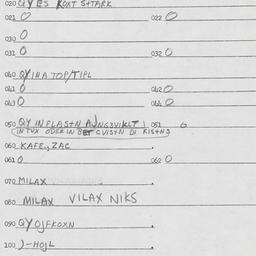 020 QY ES KOXT S+TARK
021 O 022 O
030 O
031 O 032 O
040 QY IHA TOP/TIPL
041 O 042 O
043 O 044 O
050 QY IN FLAS+N 051 O
IN TUX ODER IN BET CVIS+N DI KIS+N3
060 KAFE., ZAC
061 O 062 O
070 MILAX
080 MILAX VILAX NIKS
090 QY OJFKOXN
100 )-HOJL